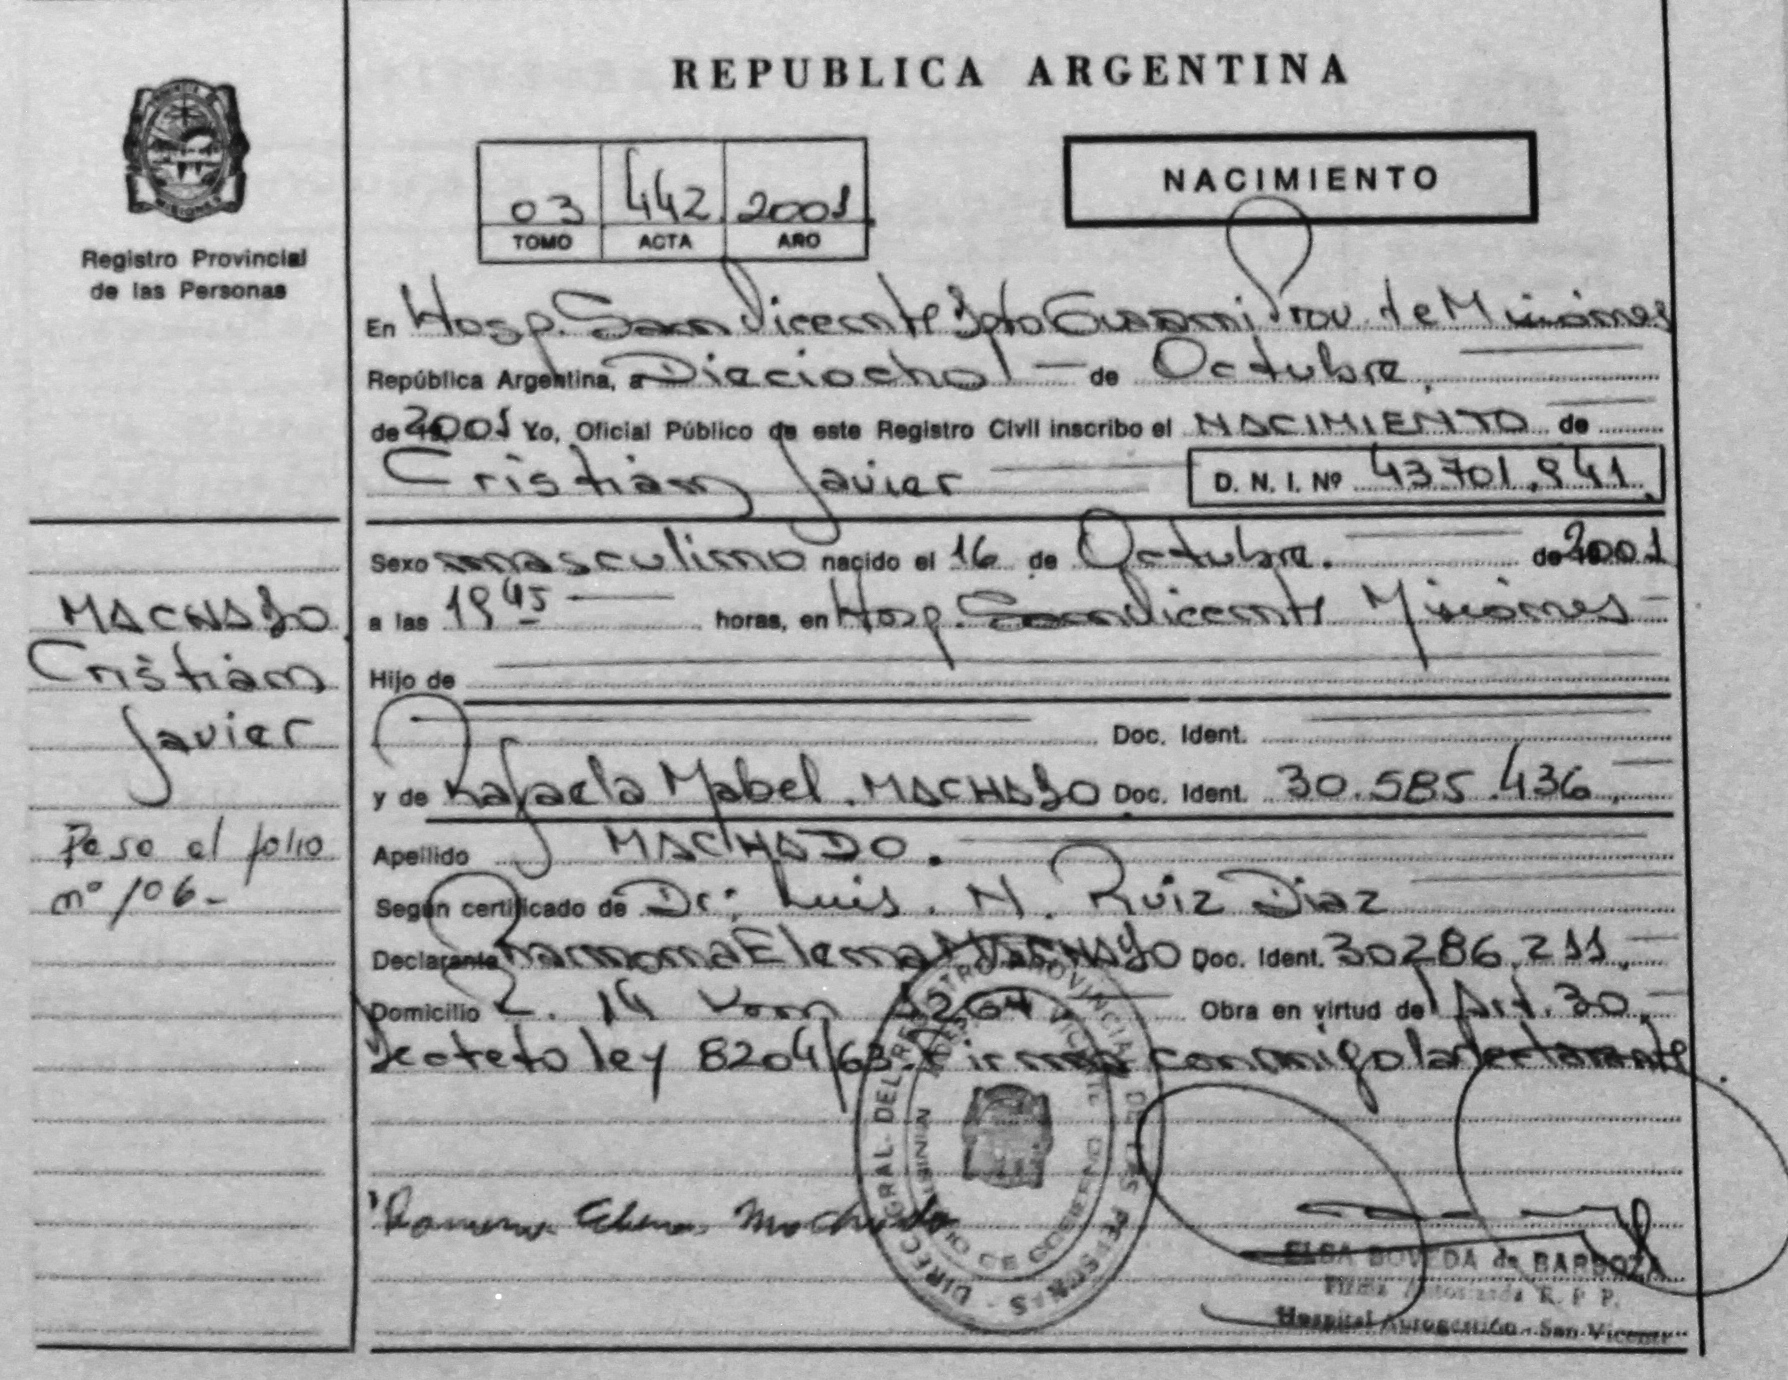 REPUBLICA ARGENTINA
NACIMIENTO
03 442 2001
TOMO ACTA AÑO
Registro Provincial
de las Personas
En Hosp. San Vicente Dpto Guaraní Prov. de Misiones
República Argentina, a Dieciocho de Octubre.
de 2001 Yo, Oficial Público de este Registro Civil inscribo el NACIMIENTO de
Cristian Javier D. N. I. Nº 43701.941.
Sexo masculino nacido el 16 de Octubre. de 2001
a las 19 45 horas, en Hosp. San Vicente Misiones
Hijo de
Doc. Ident.
y de Rafaela Mabel. MACHADO Doc. Ident. 30.585.436.
Apellido MACHADO.
Según certificado de Dr: Luis. N. Ruiz Diaz
Declarante Ramona Elena MACHADO Doc. Ident. 30286.211.
Domicilio R. 14 Km 1264 Obra en virtud del Art. 30.
Decreto ley 8204/63. Firma conmigo la declarante.
MACHADO
Cristian
Javier
Pase al folio
nº 106-
Ramona Elena Machado
DIRECC. GRAL. DEL REGISTRO PROVINCIAL DE LAS PERSONAS
ELSA BOVEDA de BARBOZA
Firma Autorizada R. P. P.
Hospital Autogestión - San Vicente